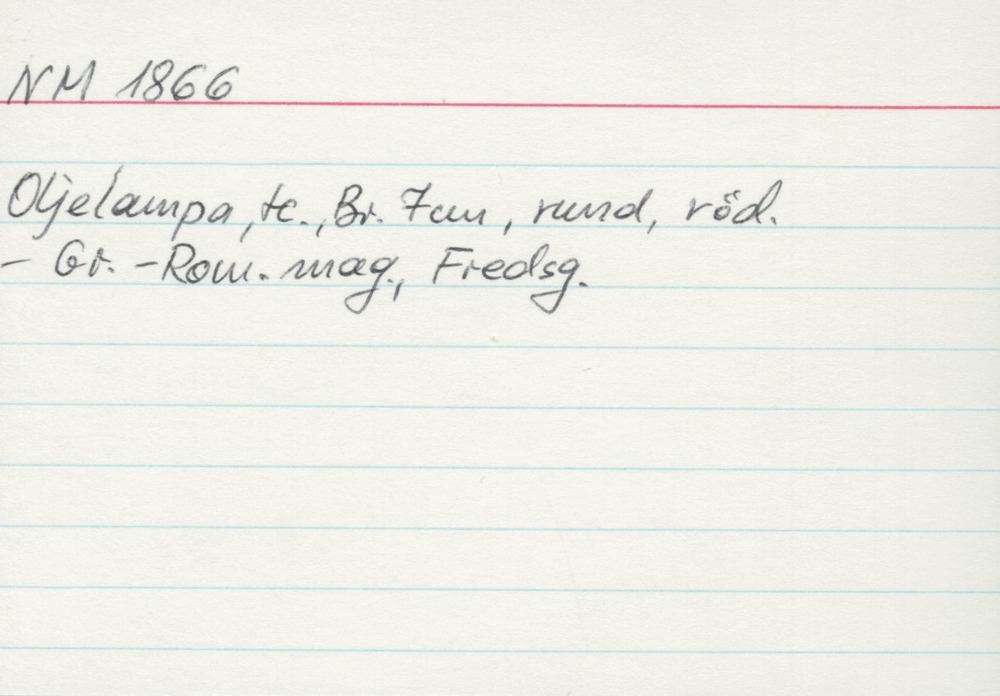 NM 1866
Oljelampa, tc., Br. 7 cm, rund, röd.
- Gr. - Rom. mag., Fredsg.